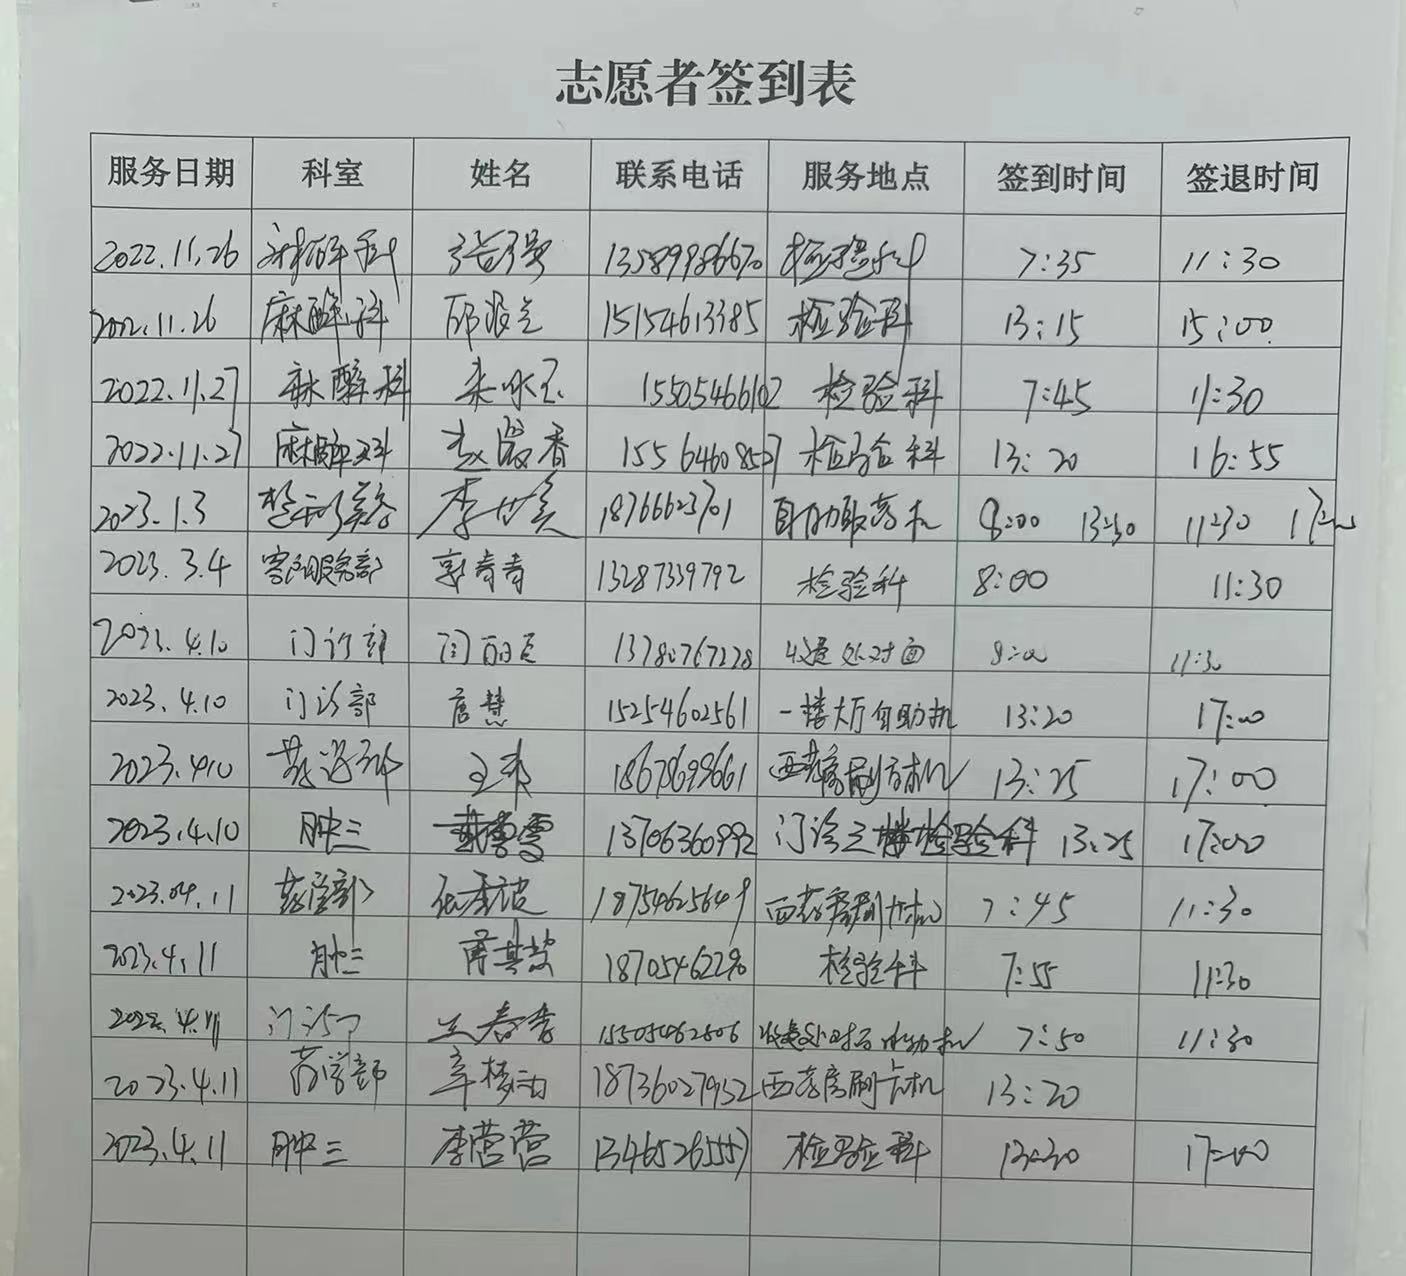 志愿者签到表
服务日期 科室 姓名 联系电话 服务地点 签到时间 签退时间
2022.11.26 麻醉科 13589986670 检验科 7:35 11:30
2022.11.26 麻醉科 15154613385 检验科 13:15 15:00
2022.11.27 麻醉科 15505466102 检验科 7:45 11:30
2022.11.27 麻醉科 赵爱香 检验科 13:20 16:55
2023.1.3 李 18766623701 自助取药机 8:00 13:30 11:30 17:00
2023.3.4 客户服务部 郭青青 13287339792 检验科 8:00 11:30
2023.4.10 门诊部 13780767228 收费处对面 8:00 11:30
2023.4.10 门诊部 唐慧 15254602561 一楼大厅自助机 13:20 17:00
2023.4.10 18678698661 13:25 17:00
2023.4.10 肿三 戴雪雪 13706360992 门诊三楼检验科 13:25 17:00
2023.04.11 药学部 18754625649 西药房刷卡机 7:45 11:30
2023.4.11 肿三 检验科 7:55 11:30
门诊 王春香 15505462606 收费处对面自助机 7:50 11:30
2023.4.11 药学部 辛梦 18736027952 西药房刷卡机 13:20
2023.4.11 肿三 李营营 检验科 13:30 17:00